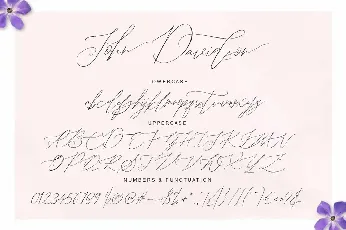 John Davidson
LOWERCASE
abcdefghijklmnopqrstuvwxyz
UPPERCASE
ABCDEFGHIJKLMN
OPQRSTUVWXYZ
NUMBERS & PUNCTUATION
0123456789